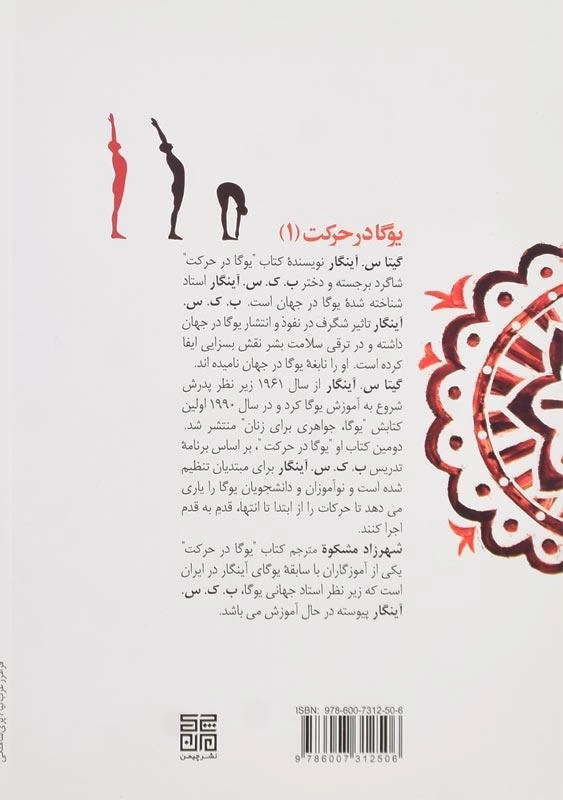 یوگا در حرکت (۱)
گیتا س. آینگار نویسندهٔ کتاب "یوگا در حرکت"
شاگرد برجسته و دختر ب. ک. س. آینگار استاد
شناخته شدهٔ یوگا در جهان است. ب. ک. س.
آینگار تاثیر شگرف در نفوذ و انتشار یوگا در جهان
داشته و در ترقی سلامت بشر نقش بسزایی ایفا
کرده است. او را نابغهٔ یوگا در جهان نامیده اند.
گیتا س. آینگار از سال ۱۹۶۱ زیر نظر پدرش
شروع به آموزش یوگا کرد و در سال ۱۹۹۰ اولین
کتابش "یوگا، جواهری برای زنان" منتشر شد.
دومین کتاب او "یوگا در حرکت "، بر اساس برنامهٔ
تدریس ب. ک. س. آینگار برای مبتدیان تنظیم
شده است و نوآموزان و دانشجویان یوگا را یاری
می دهد تا حرکات را از ابتدا تا انتها، قدم به قدم
اجرا کنند.
شهرزاد مشکوة مترجم کتاب "یوگا در حرکت"
یکی از آموزگاران با سابقهٔ یوگای آینگار در ایران
است که زیر نظر استاد جهانی یوگا، ب. ک. س.
آینگار پیوسته در حال آموزش می باشد.
نشر چیمن
ISBN: 978-600-7312-50-6
9 786007 312506